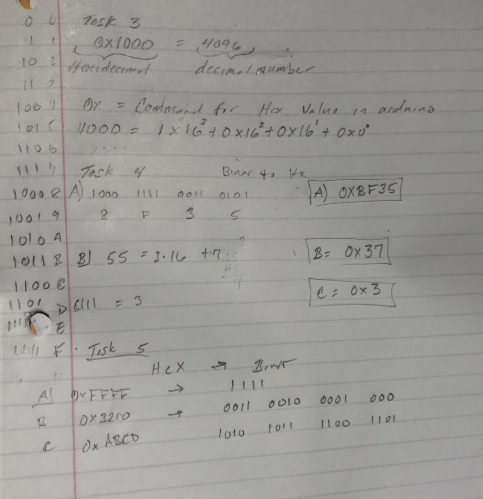 0 0 Task 3
1 1 0x1000 = 4096
10 2 Hexidecimal decimal number
11
100 0x = Command for Hex Value in arduino
101 1000 = 1 x 16³ + 0x16² + 0x16¹ + 0x0⁰
110 6
111 7 Task 4 Binar to Hx
1000 8 A) 1000 1111 0011 0101 A) 0x8F35
1001 9 8 F 3 5
1010 A
1011 B B) 55 = 3·16 + 7 B = 0x37
1100 C C = 0x3
1101 D C) 11 = 3
E
1111 F Task 5
Hex → Binar
A) 0xFFFF → 1111
B 0x3210 → 0011 0010 0001 000
C 0xABCD 1010 1011 1100 1101